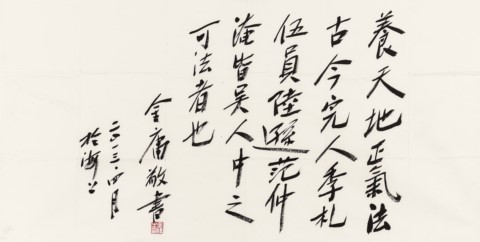 養天地正氣法
古今完人季札
伍員陸遜范仲
淹皆吴人中之
可法者也
金庸敬書
二〇一三·四月
於海上